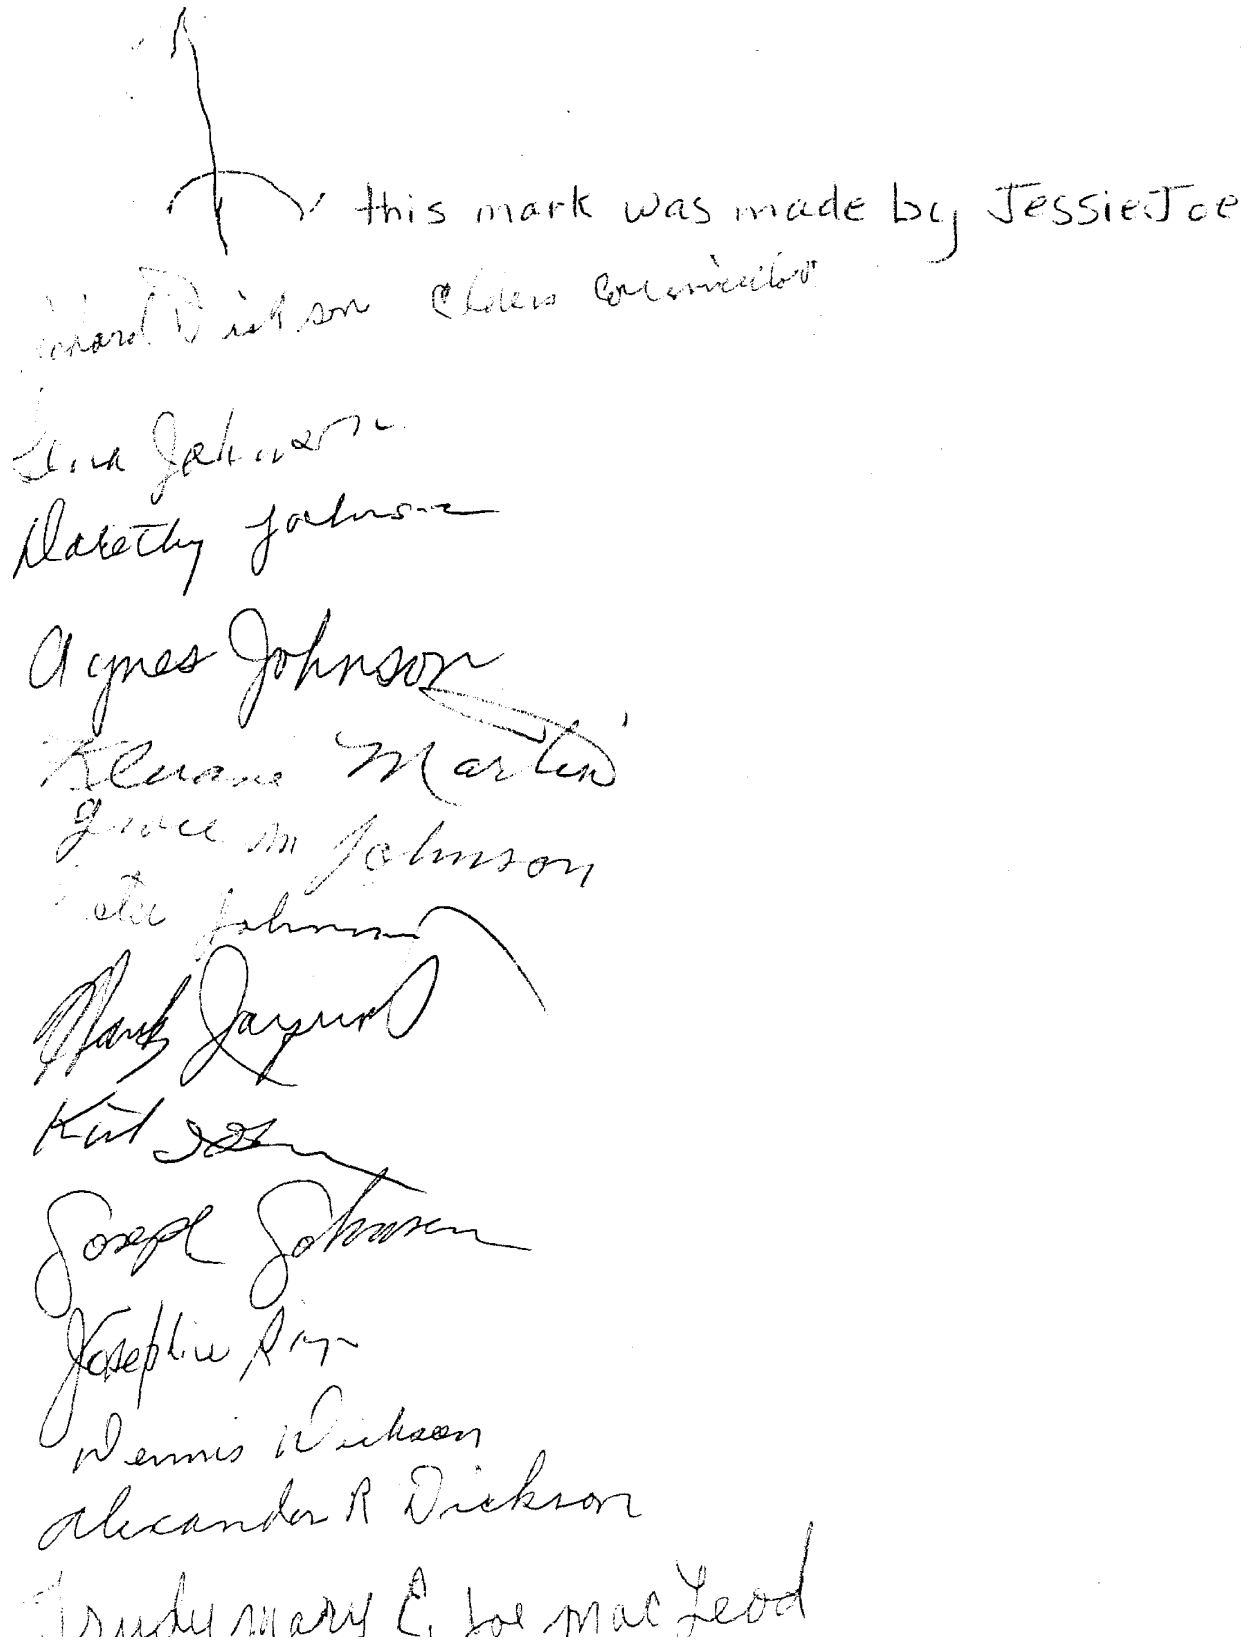 this mark was made by Jessie Joe
Dickson Elders Councillor
Lena Johnson
Dorothy Johnson
Agnes Johnson
Kluane Martin
Grace M Johnson
Johnson
Mark
Joseph Johnson
Josephine
Dennis Dickson
Alexander R Dickson
Trudy Mary E. Joe MacLeod